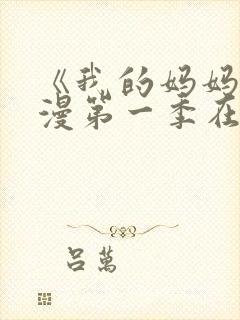 《我的妈妈
漫第一季在
吕萬